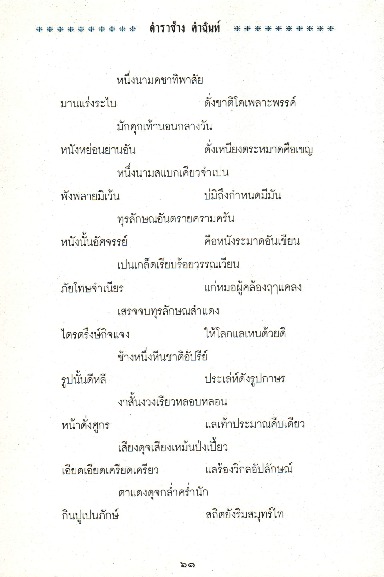 ตำราช้าง คำฉันท์
หนึ่งนามคชาทิพาสัย
มานแร่งระไบ ดั่งชาติโคเพลาะพรรค์
มักคุกเท้านอนกลางวัน
หนังหย่อนยานอัน ดั่งเหนียงตระหมาดคือเชญ
หนึ่งนามสแบกเคียวจำเบน
พังพลายมิเว้น บ่มิถึงกำหนดมีมัน
ทุรลักษณอันตรายครามครัน
หนังนั้นอัศจรรย์ คือหนังระมาดอันเขียน
เปนเกล็ดเรียบร้อยวรรณเวียน
ภัยโทษจำเนียร แก่หมอผู้คล้องฤๅแคลง
เสรจจบทุรลักษณสำแดง
ไตรตรึงษ์กิจแจง ให้โลกแลเหนด้วยดี
ช้างหนึ่งหีนชาติอัปรีย์
รูปนั้นดีหลี ประเล่ห์ดังรูปกาษร
งาสั้นงวงเรียวหลอบหลอน
หน้าดั่งศูกร แลเท้าประมาณคืบเดียว
เสียงดุจเสียงเหม้นป่งเปี้ยว
เอียดเอียดเครียดเครียว แลร้องวิกลอัปลักษณ์
ตาแดงดุจกล่ำคร่ำนัก
กินปูเปนภักษ์ สถิตยังริมสมุทร์ไท
๖๑